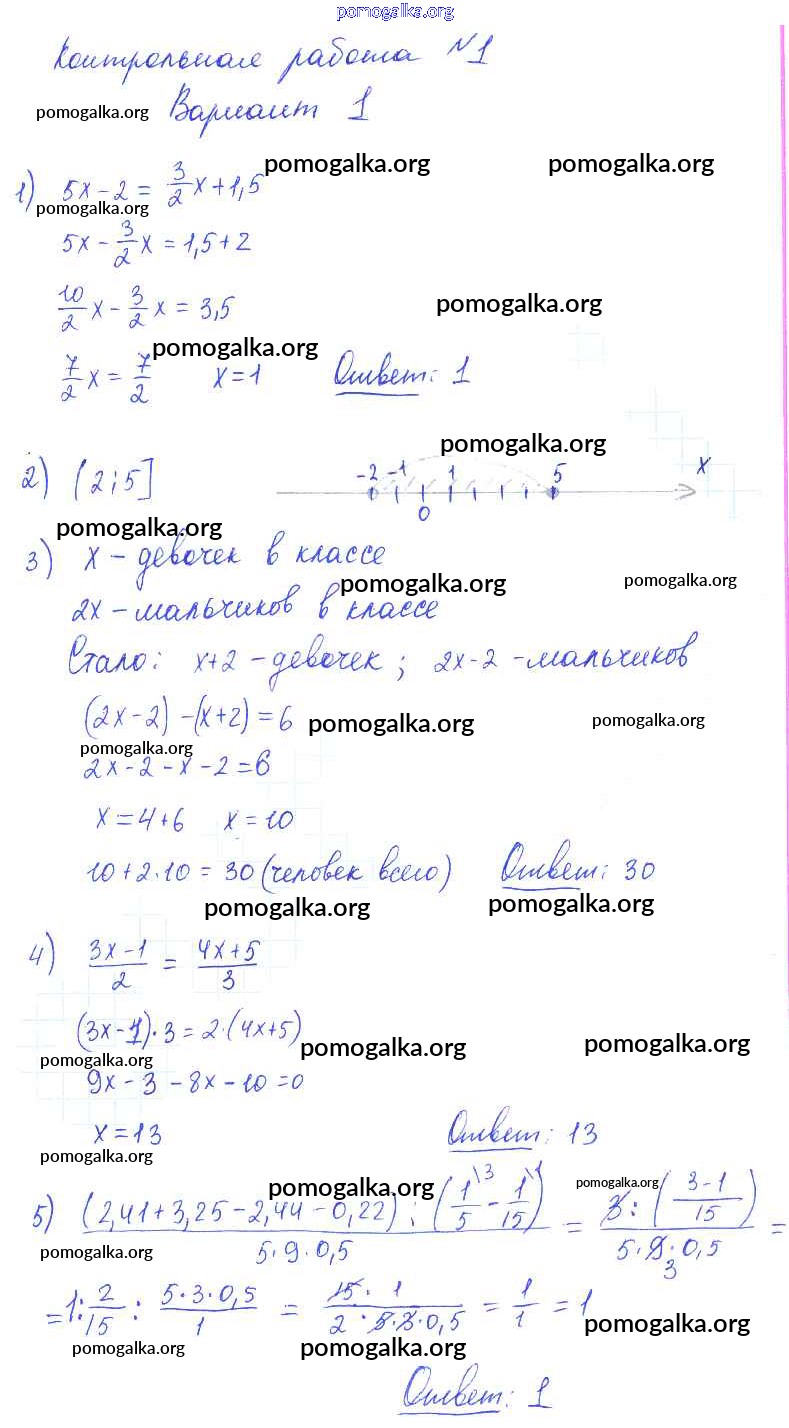 pomogalka.org
Контрольная работа №1
pomogalka.org Вариант 1
pomogalka.org pomogalka.org
1) 5x - 2 = 3/2 x + 1,5
pomogalka.org
5x - 3/2 x = 1,5 + 2
10/2 x - 3/2 x = 3,5
pomogalka.org
pomogalka.org
7/2 x = 7/2 x = 1 Ответ: 1
pomogalka.org
2) (2; 5] -2 -1 0 1 5 x
pomogalka.org
3) x - девочек в классе
pomogalka.org pomogalka.org
2x - мальчиков в классе
Стало: x+2 - девочек; 2x-2 - мальчиков
(2x-2) - (x+2) = 6
pomogalka.org pomogalka.org
pomogalka.org
2x - 2 - x - 2 = 6
x = 4 + 6 x = 10
10 + 2·10 = 30 (человек всего) Ответ: 30
pomogalka.org pomogalka.org
4) (3x-1)/2 = (4x+5)/3
(3x-1)·3 = 2·(4x+5)
pomogalka.org pomogalka.org
pomogalka.org
9x - 3 - 8x - 10 = 0
x = 13 Ответ: 13
pomogalka.org
pomogalka.org pomogalka.org
5) (2,41+3,25-2,44-0,22) : (1\3/5 - 1\1/15) / 5·9·0,5 = 3 : (3-1/15) / 5·9·0,5 =
3
pomogalka.org
= 1 : 2/15 : 5·3·0,5/1 = 15·1 / 2·5·3·0,5 = 1/1 = 1
pomogalka.org
pomogalka.org pomogalka.org
Ответ: 1